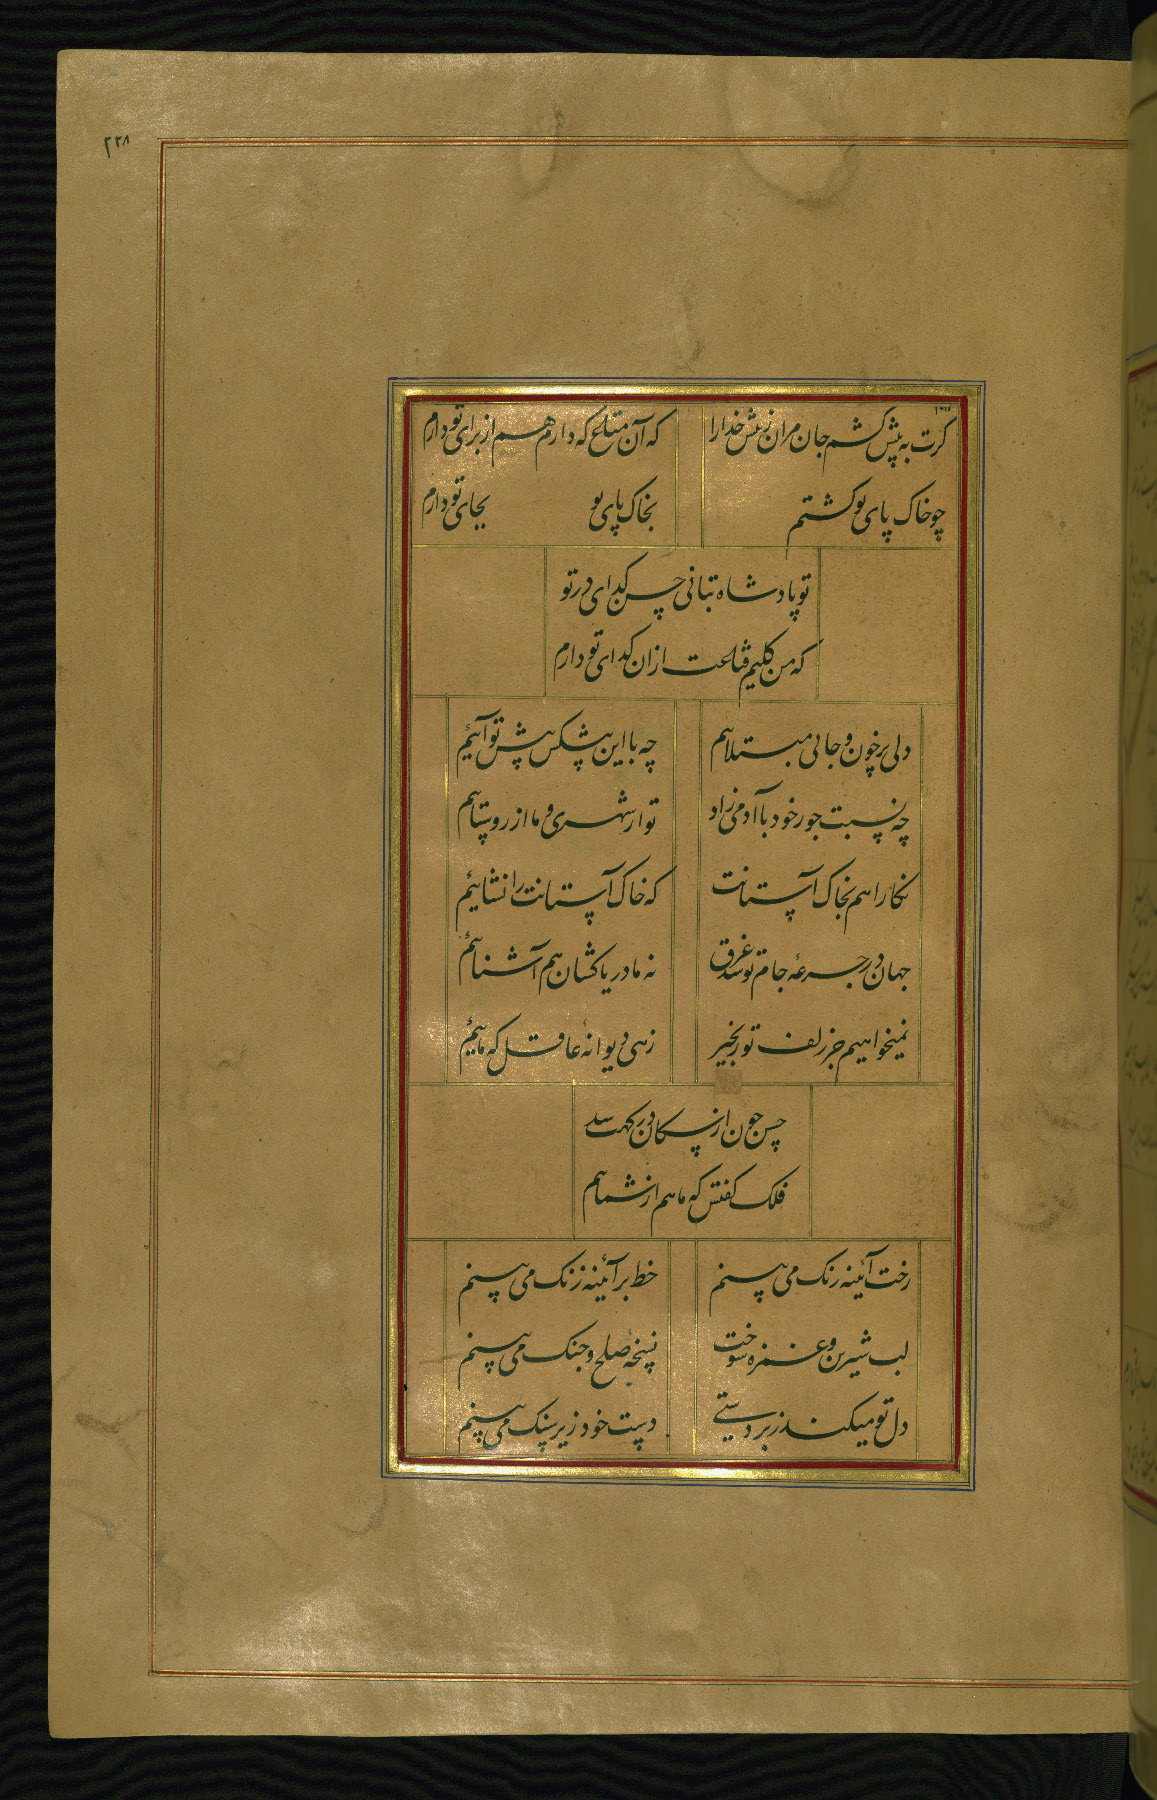 ۲۲۸
گرت به پیش کشم جان مران ز پیش خدارا که آن متاع که دارم هم از برای تو دارم
چو خاک پای تو کشتم بخاک پای تو بجای تو دارم
تو پادشاه بتانی حسن کدای در تو
که من کلیم قناعت ازان کدای تو دارم
دلی پرخون و جانی مبتلاهم چه با این پیشکس پیش تو آئیم
چه نسبت جور خود با آدمی زاد تو از شهری و ما از روستاهم
نکارا هم بخاک آستانت که خاک آستانت را نشائیم
جهان در جرعه جام تو شد غرق نه ما دریا کشان هم آشناهم
نمیخواهیم جز زلف تو زنجیر زهی دیوانه عاقل که مائیم
حسن چون از سکان در کهت شد
فلک کفتش که ما هم از شماهم
رخت آئینه رنک می بینم خط بر آئینه زنک می بینم
لب شیرین و غمزه شوخت نسخه صلح و جنک می بینم
دل تو میکند زبر دستی دست خود زیر سنک می بینم